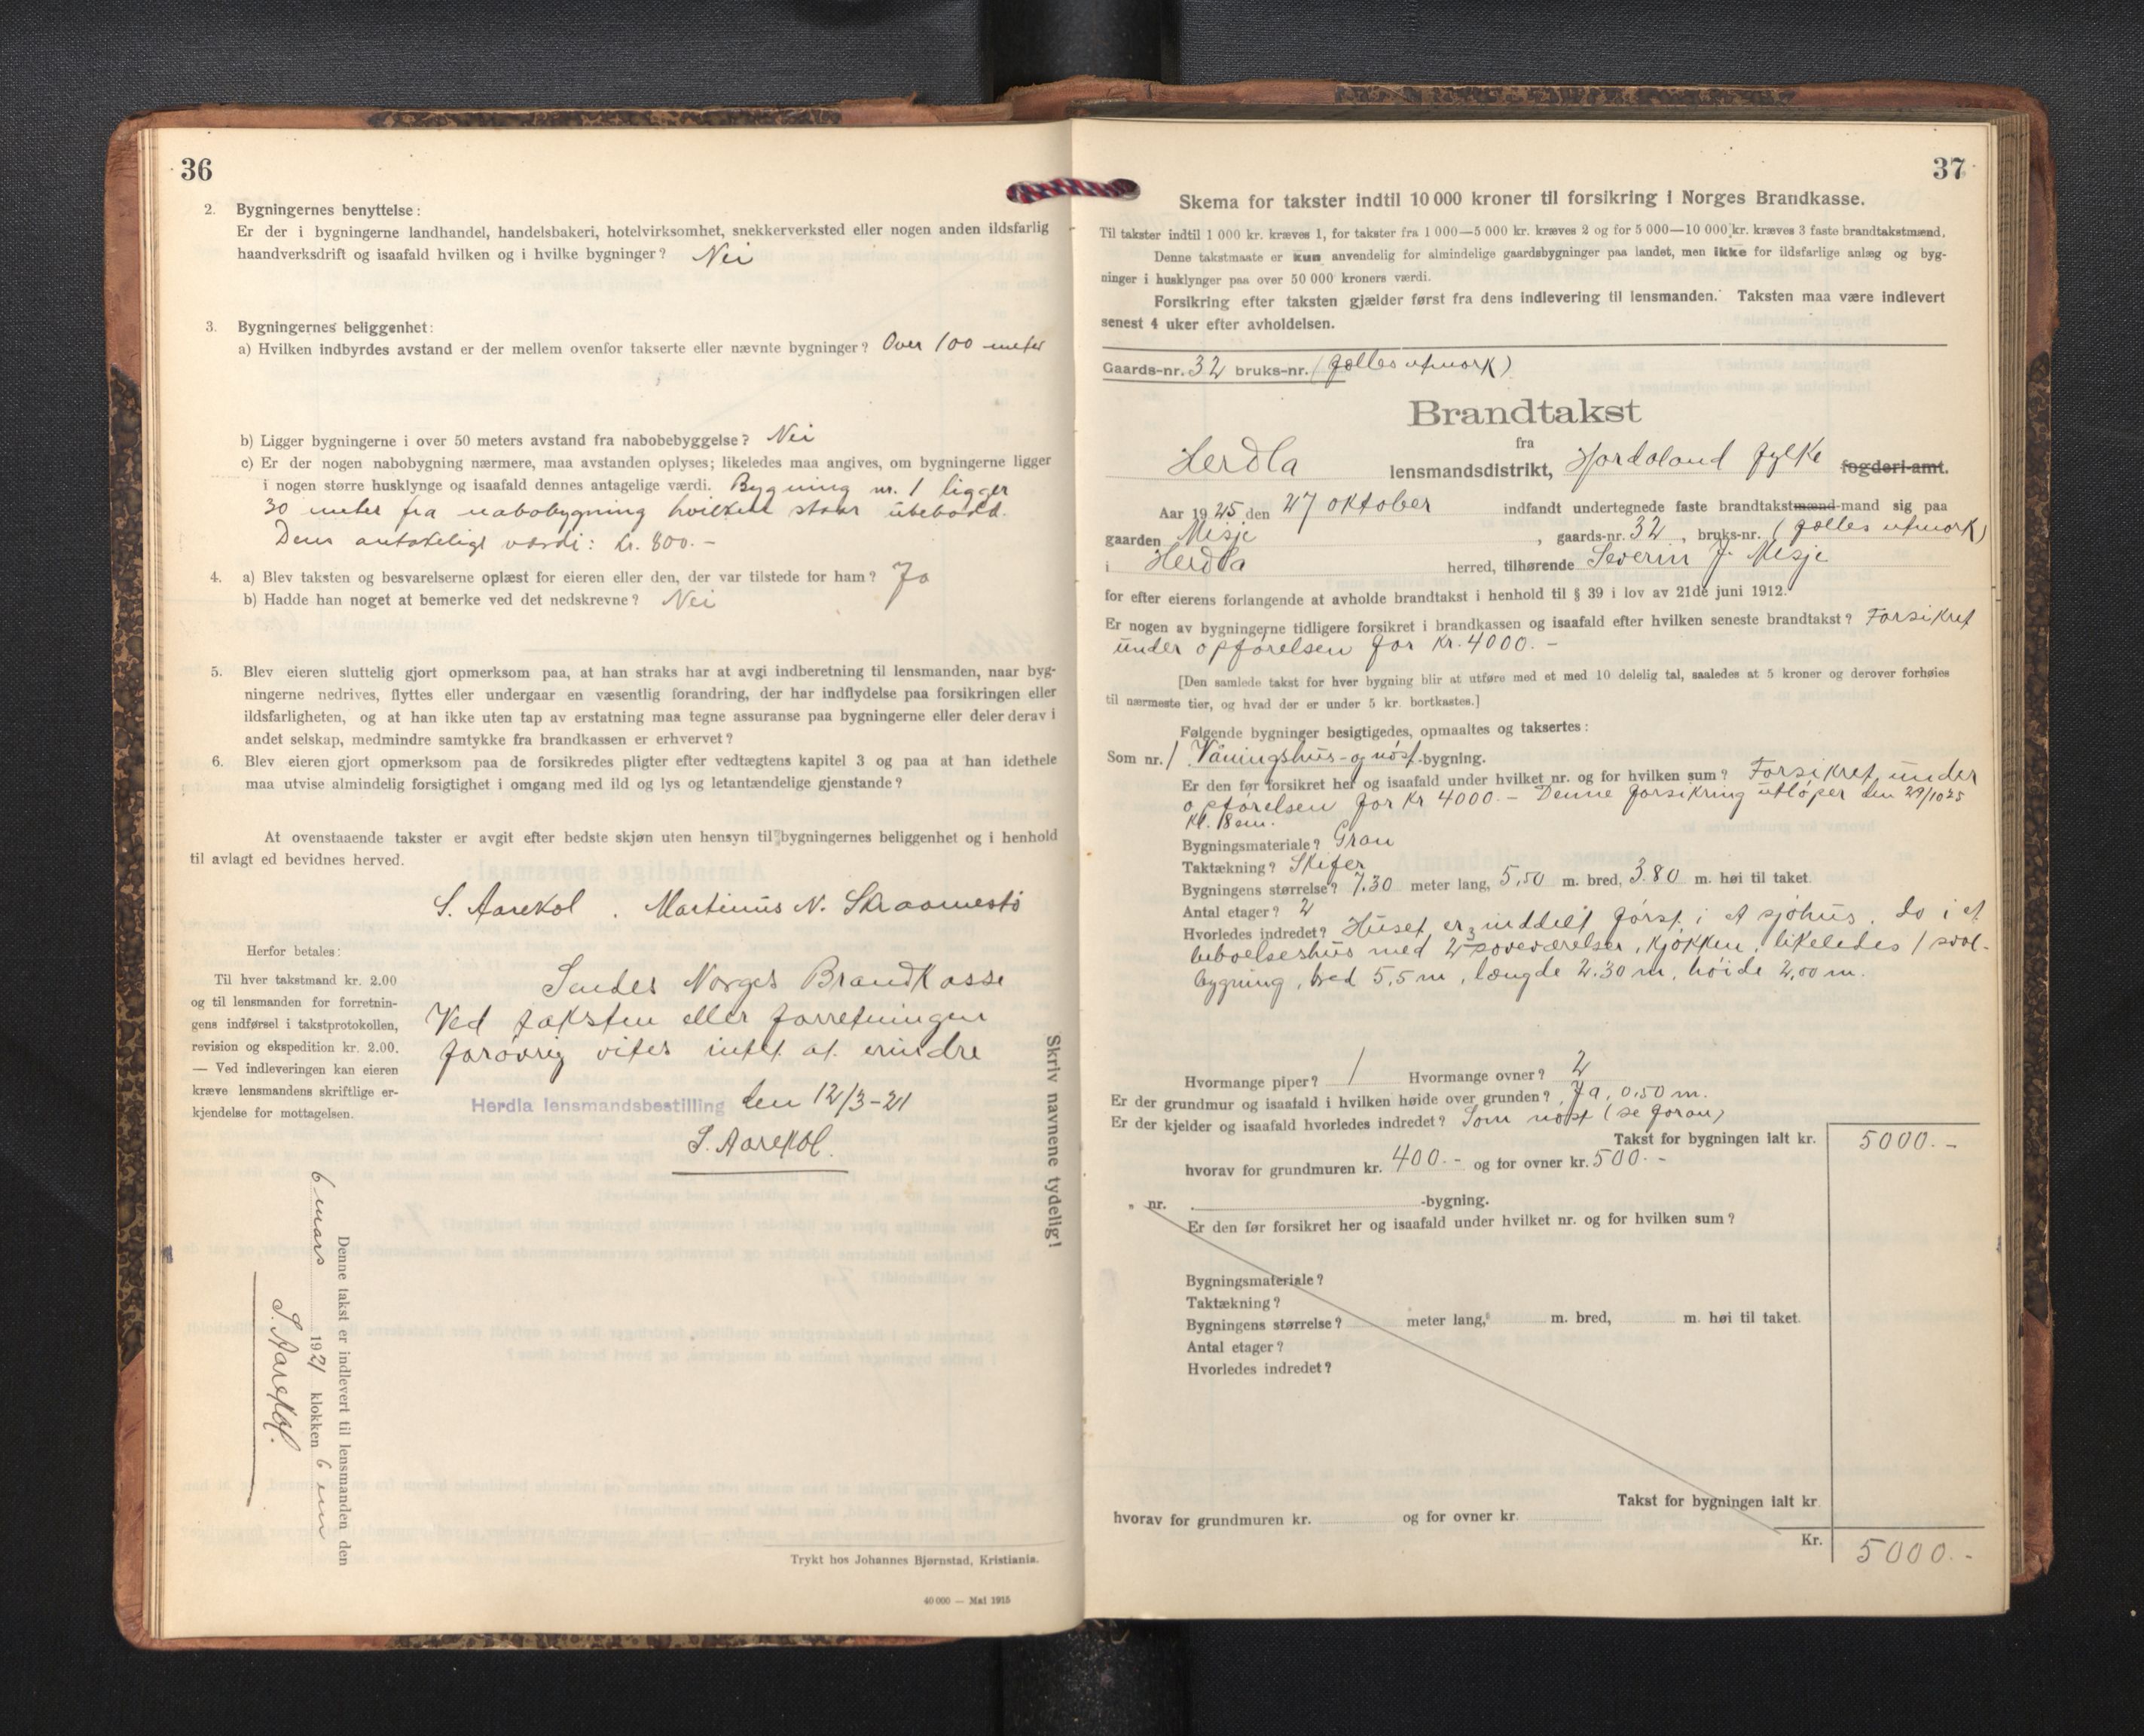 36
2. Bygningernes benyttelse:
Er der i bygningerne landhandel, handelsbakeri, hotelvirksomhet, snekkerverksted eller nogen anden ildsfarlig
haandverksdrift og isaafald hvilken og i hvilke bygninger? Nei
3. Bygningernes beliggenhet:
a) Hvilken indbyrdes avstand er der mellem ovenfor takserte eller nævnte bygninger? Over 100 meter
b) Ligger bygningerne i over 50 meters avstand fra nabobebyggelse? Nei
c) Er der nogen nabobygning nærmere, maa avstanden oplyses; likeledes maa angives, om bygningerne ligger
i nogen større husklynge og isaafald dennes antagelige værdi. Bygning nr. 1 ligger
30 meter fra nabobygning hvilken staar ubebodd.
Dens antakelige værdi: kr. 800.-
4. a) Blev taksten og besvarelserne oplæst for eieren eller den, der var tilstede for ham? Ja
b) Hadde han noget at bemerke ved det nedskrevne? Nei
5. Blev eieren sluttelig gjort opmerksom paa, at han straks har at avgi indberetning til lensmanden, naar byg-
ningerne nedrives, flyttes eller undergaar en væsentlig forandring, der har indflydelse paa forsikringen eller
ildsfarligheten, og at han ikke uten tap av erstatning maa tegne assuranse paa bygningerne eller deler derav i
andet selskap, medmindre samtykke fra brandkassen er erhvervet?
6. Blev eieren gjort opmerksom paa de forsikredes pligter efter vedtægtens kapitel 3 og paa at han idethele
maa utvise almindelig forsigtighet i omgang med ild og lys og letantændelige gjenstande?
At ovenstaaende takster er avgit efter bedste skjøn uten hensyn til bygningernes beliggenhet og i henhold
til avlagt ed bevidnes herved.
S. Aarekol . Martinus N. Skraamestö
Herfor betales:
Til hver takstmand kr. 2.00
og til lensmanden for forretnin-
gens indførsel i takstprotokollen,
revision og ekspedition kr. 2.00.
— Ved indleveringen kan eieren
kræve lensmandens skriftlige er-
kjendelse for mottagelsen.
Sendes Norges Brandkasse
Ved taksten eller forretningen
forøvrig vites intet at erindre
Herdla lensmandsbestilling den 12/3-21
S. Aarekol.
Skriv navnene tydelig!
Denne takst er indlevert til lensmanden den
6 mars 1921 klokken 6 em
S. Aarekol.
Trykt hos Johannes Bjørnstad, Kristiania.
40 000 — Mai 1915
37
Skema for takster indtil 10 000 kroner til forsikring i Norges Brandkasse.
Til takster indtil 1 000 kr. kræves 1, for takster fra 1 000—5 000 kr. kræves 2 og for 5 000—10 000 kr. kræves 3 faste brandtakstmænd.
Denne takstmaate er kun anvendelig for almindelige gaardsbygninger paa landet, men ikke for ildsfarlige anlæg og byg-
ninger i husklynger paa over 50 000 kroners værdi.
Forsikring efter taksten gjælder først fra dens indlevering til lensmanden. Taksten maa være indlevert
senest 4 uker efter avholdelsen.
Gaards-nr. 32 bruks-nr. (fælles utmark)
Brandtakst
fra
Herdla lensmandsdistrikt, Hordaland fylke fogderi-amt.
Aar 1925 den 27 oktober indfandt undertegnede faste brandtakstmænd-mand sig paa
gaarden Misje, gaards-nr. 32, bruks-nr. (fælles utmark)
i Herdla herred, tilhørende Severin J. Misje
for efter eierens forlangende at avholde brandtakst i henhold til § 39 i lov av 21de juni 1912.
Er nogen av bygningerne tidligere forsikret i brandkassen og isaafald efter hvilken seneste brandtakst? Forsikret
under opførelsen for kr. 4000.-
[Den samlede takst for hver bygning blir at utføre med et med 10 delelig tal, saaledes at 5 kroner og derover forhøies
til nærmeste tier, og hvad der er under 5 kr. bortkastes.]
Følgende bygninger besigtigedes, opmaaltes og taksertes:
Som nr. 1 Våningshus- og nøst-bygning.
Er den før forsikret her og isaafald under hvilket nr. og for hvilken sum? Forsikret under
opførelsen for kr 4000.- Denne forsikring utløper den 29/10 25
kl. 18 em.
Bygningsmateriale? Gran
Taktækning? Skifer
Bygningens størrelse? 7.30 meter lang, 5,50 m. bred, 3.80 m. høi til taket.
Antal etager? 2
Hvorledes indredet? Huset er inddelt først i et sjøhus. Så i et
beboelseshus med 3 soveværelser, kjøkken, likeledes 1 sval-
bygning, bred 5,5 m, længde 2.30 m, høide 2,00 m.
Hvormange piper? 1 Hvormange ovner? 2
Er der grundmur og isaafald i hvilken høide over grunden? Ja, 0,50 m.
Er der kjelder og isaafald hvorledes indredet? Som nøst (se foran)
Takst for bygningen ialt kr. 5000.-
hvorav for grundmuren kr. 400.- og for ovner kr. 500.-
" nr. -bygning.
Er den før forsikret her og isaafald under hvilket nr. og for hvilken sum?
Bygningsmateriale?
Taktækning?
Bygningens størrelse? meter lang, m. bred, m. høi til taket.
Antal etager?
Hvorledes indredet?
Takst for bygningen ialt kr
hvorav for grundmuren kr. og for ovner kr.
Kr. 5000.-